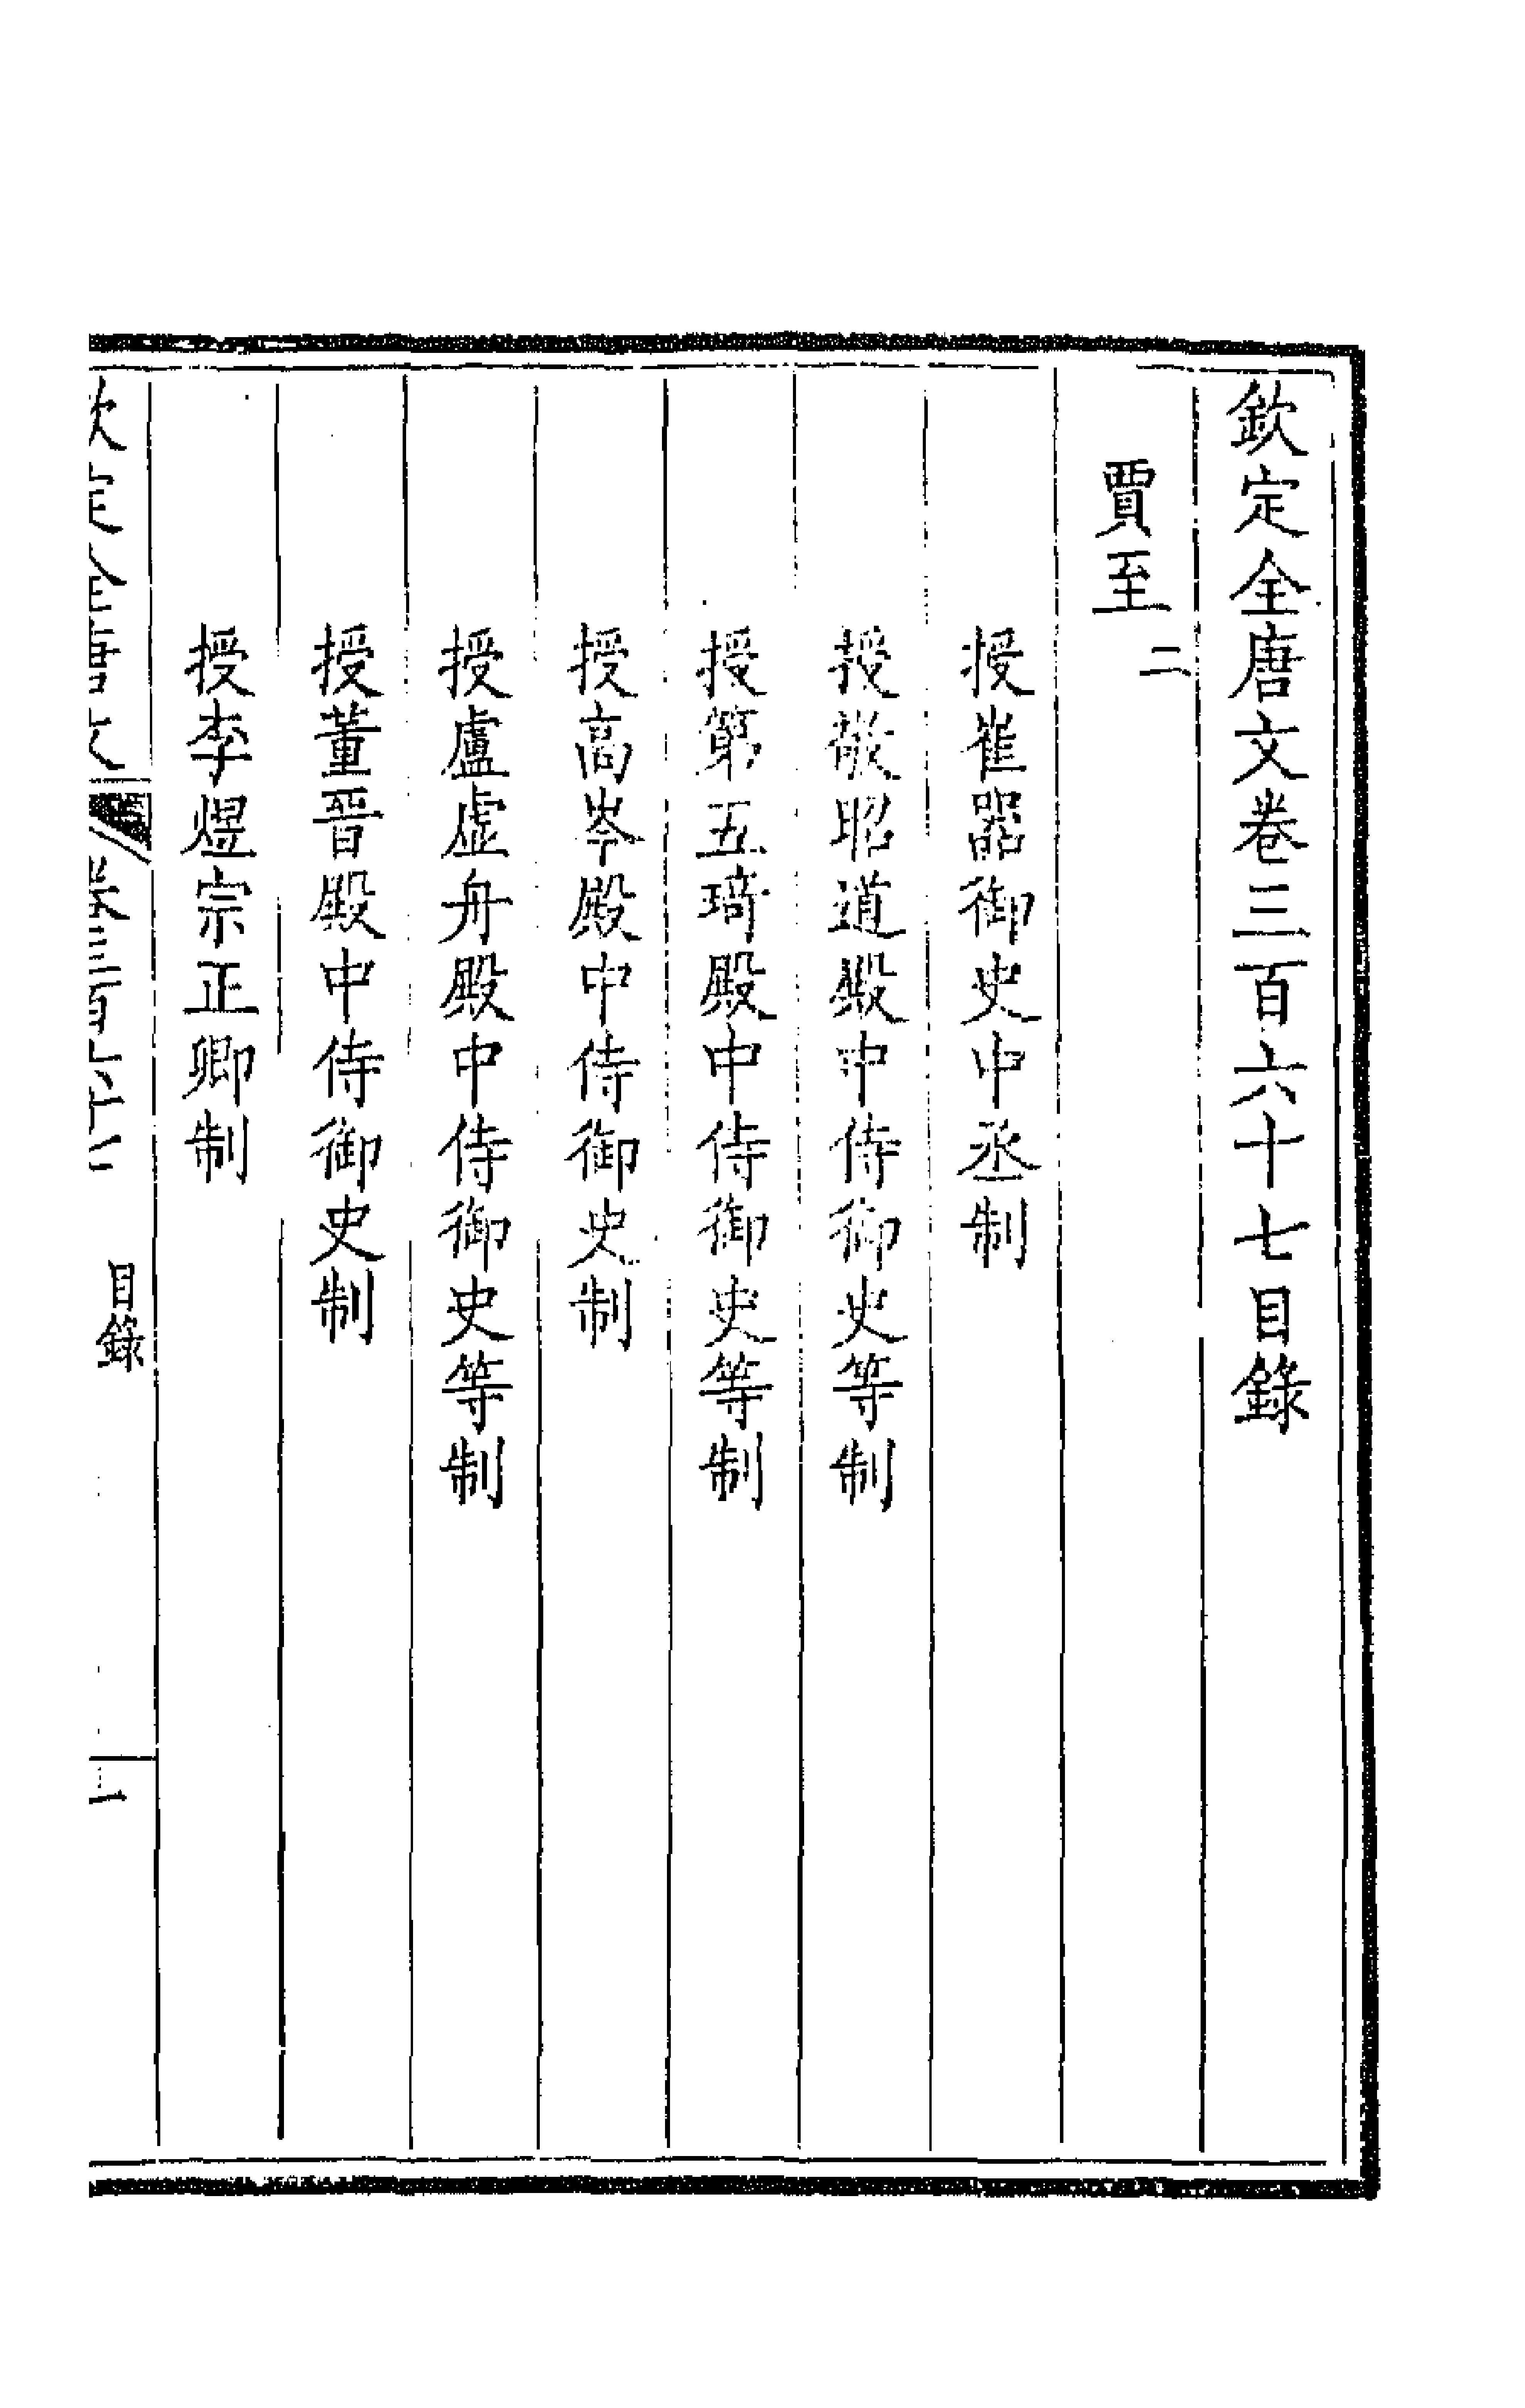 欽定全唐文卷三百六十七目錄
賈至二
授崔器御史中丞制
授敬昭道殿中侍御史等制
授第五琦殿中侍御史等制
授高岑殿中侍御史制
授盧虛舟殿中侍御史等制
授董晉殿中侍御史制
授李煜宗正卿制
欽定全唐文 卷三百六十七 目錄 一